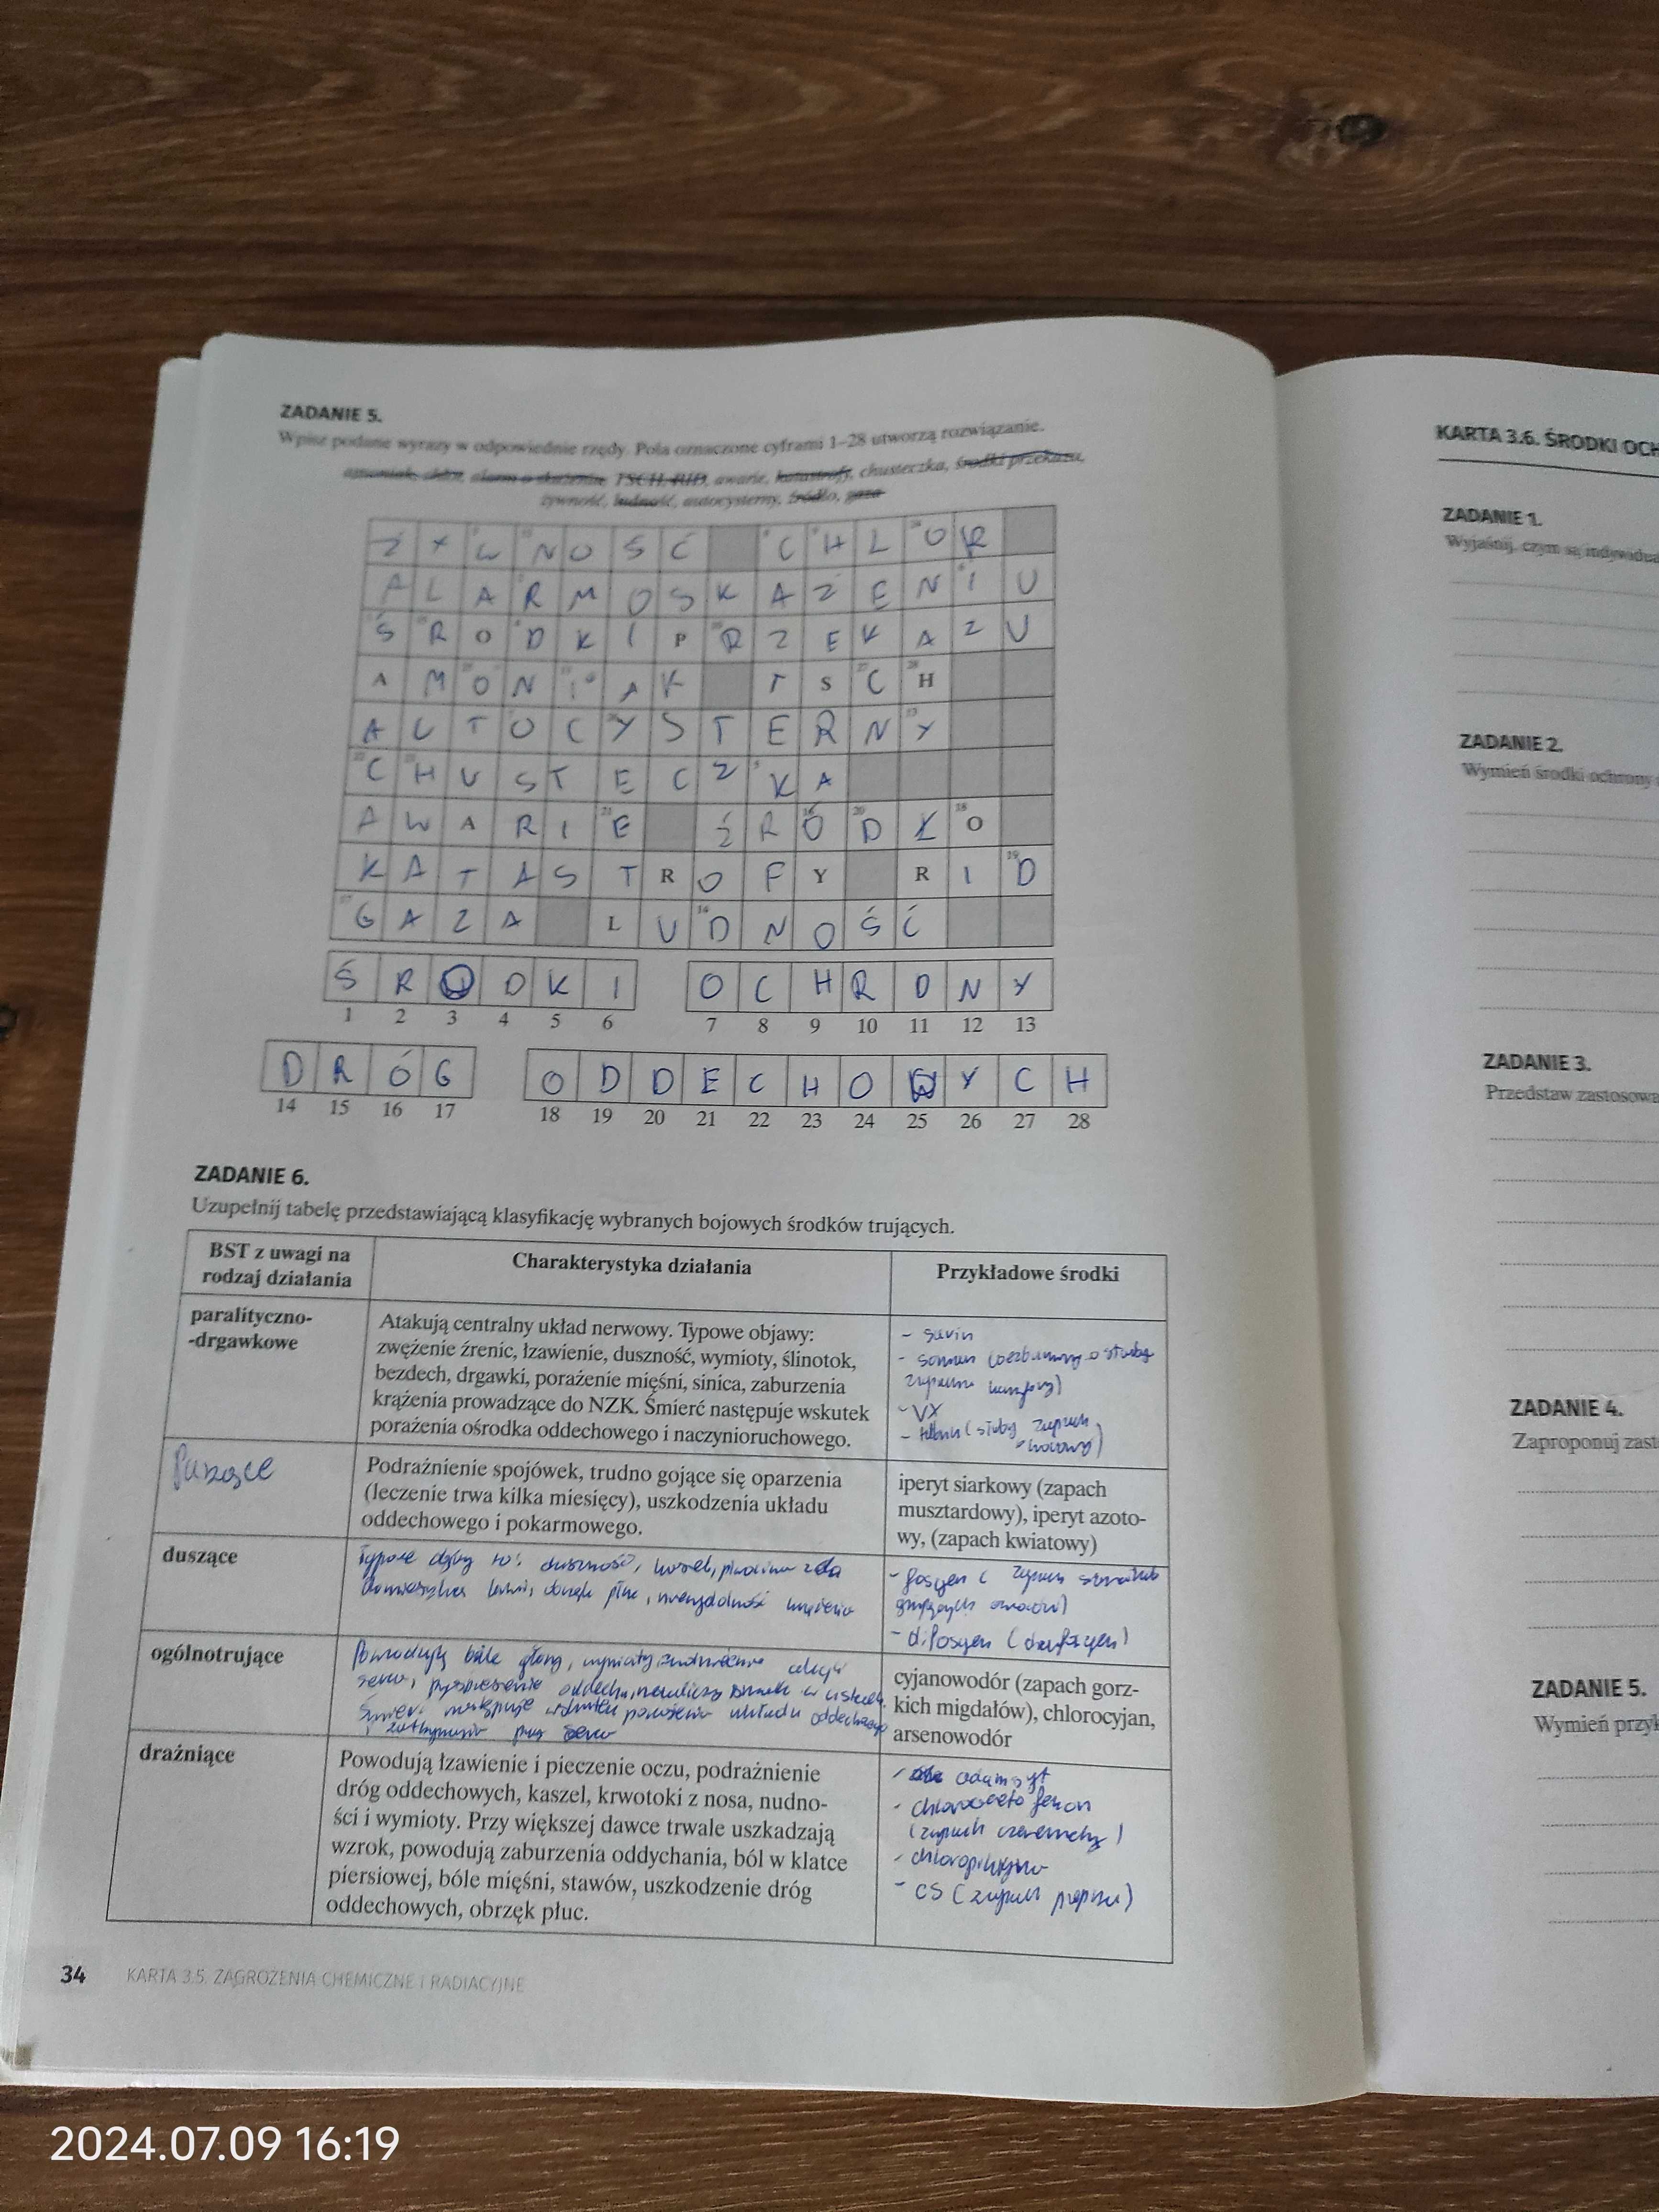 ZADANIE 5.
Wpisz podane wyrazy w odpowiednie rzędy. Pola oznaczone cyframi 1–28 utworzą rozwiązanie.
amoniak, chlor, alarm o skażeniu, TSCH, RID, awarie, katastrofy, chusteczka, środki przekazu,
żywność, ludność, autocysterny, źródło, gaza
Ż Y W N O Ś Ć C H L O R
A L A R M O S K A Ż E N I U
Ś R O D K I P R Z E K A Z U
A M O N I A K T S C H
A U T O C Y S T E R N Y
C H U S T E C Z K A
A W A R I E Ź R Ó D Ł O
K A T A S T R O F Y R I D
G A Z A L U D N O Ś Ć
Ś R O D K I O C H R O N Y
1 2 3 4 5 6 7 8 9 10 11 12 13
D R Ó G O D D E C H O W Y C H
14 15 16 17 18 19 20 21 22 23 24 25 26 27 28
ZADANIE 6.
Uzupełnij tabelę przedstawiającą klasyfikację wybranych bojowych środków trujących.
BST z uwagi na
rodzaj działania
Charakterystyka działania
Przykładowe środki
paralityczno-
-drgawkowe
Atakują centralny układ nerwowy. Typowe objawy:
zwężenie źrenic, łzawienie, duszność, wymioty, ślinotok,
bezdech, drgawki, porażenie mięśni, sinica, zaburzenia
krążenia prowadzące do NZK. Śmierć następuje wskutek
porażenia ośrodka oddechowego i naczynioruchowego.
- sarin
- soman (bezbarwny o
zapachu
- VX
- tabun (słaby zapach
owocowy)
Parzące
Podrażnienie spojówek, trudno gojące się oparzenia
(leczenie trwa kilka miesięcy), uszkodzenia układu
oddechowego i pokarmowego.
iperyt siarkowy (zapach
musztardowy), iperyt azoto-
wy, (zapach kwiatowy)
duszące
Typowe to: duszność, kaszel, plwocina
krwi, obrzęk płuc, niewydolność krążenia
- fosgen ( zapach
gnijących owoców)
- difosgen (
ogólnotrujące
Powodują bóle głowy, wymioty, akcji
serca, przyspieszenie oddechu,
Śmierć następuje wskutek porażenia układu oddechowego
i zatrzymania pracy serca
cyjanowodór (zapach gorz-
kich migdałów), chlorocyjan,
arsenowodór
drażniące
Powodują łzawienie i pieczenie oczu, podrażnienie
dróg oddechowych, kaszel, krwotoki z nosa, nudno-
ści i wymioty. Przy większej dawce trwale uszkadzają
wzrok, powodują zaburzenia oddychania, ból w klatce
piersiowej, bóle mięśni, stawów, uszkodzenie dróg
oddechowych, obrzęk płuc.
- adamsyt
- chloroacetofenon
(zapach czeremchy)
- chloropikryna
- CS (zapach pieprzu)
34 KARTA 3.5. ZAGROŻENIA CHEMICZNE I RADIACYJNE
KARTA 3.6. ŚRODKI OCH
ZADANIE 1.
Wyjaśnij, czym są indywidua
ZADANIE 2.
Wymień środki ochrony
ZADANIE 3.
Przedstaw zastosowa
ZADANIE 4.
Zaproponuj zast
ZADANIE 5.
Wymień przyk
2024.07.09 16:19